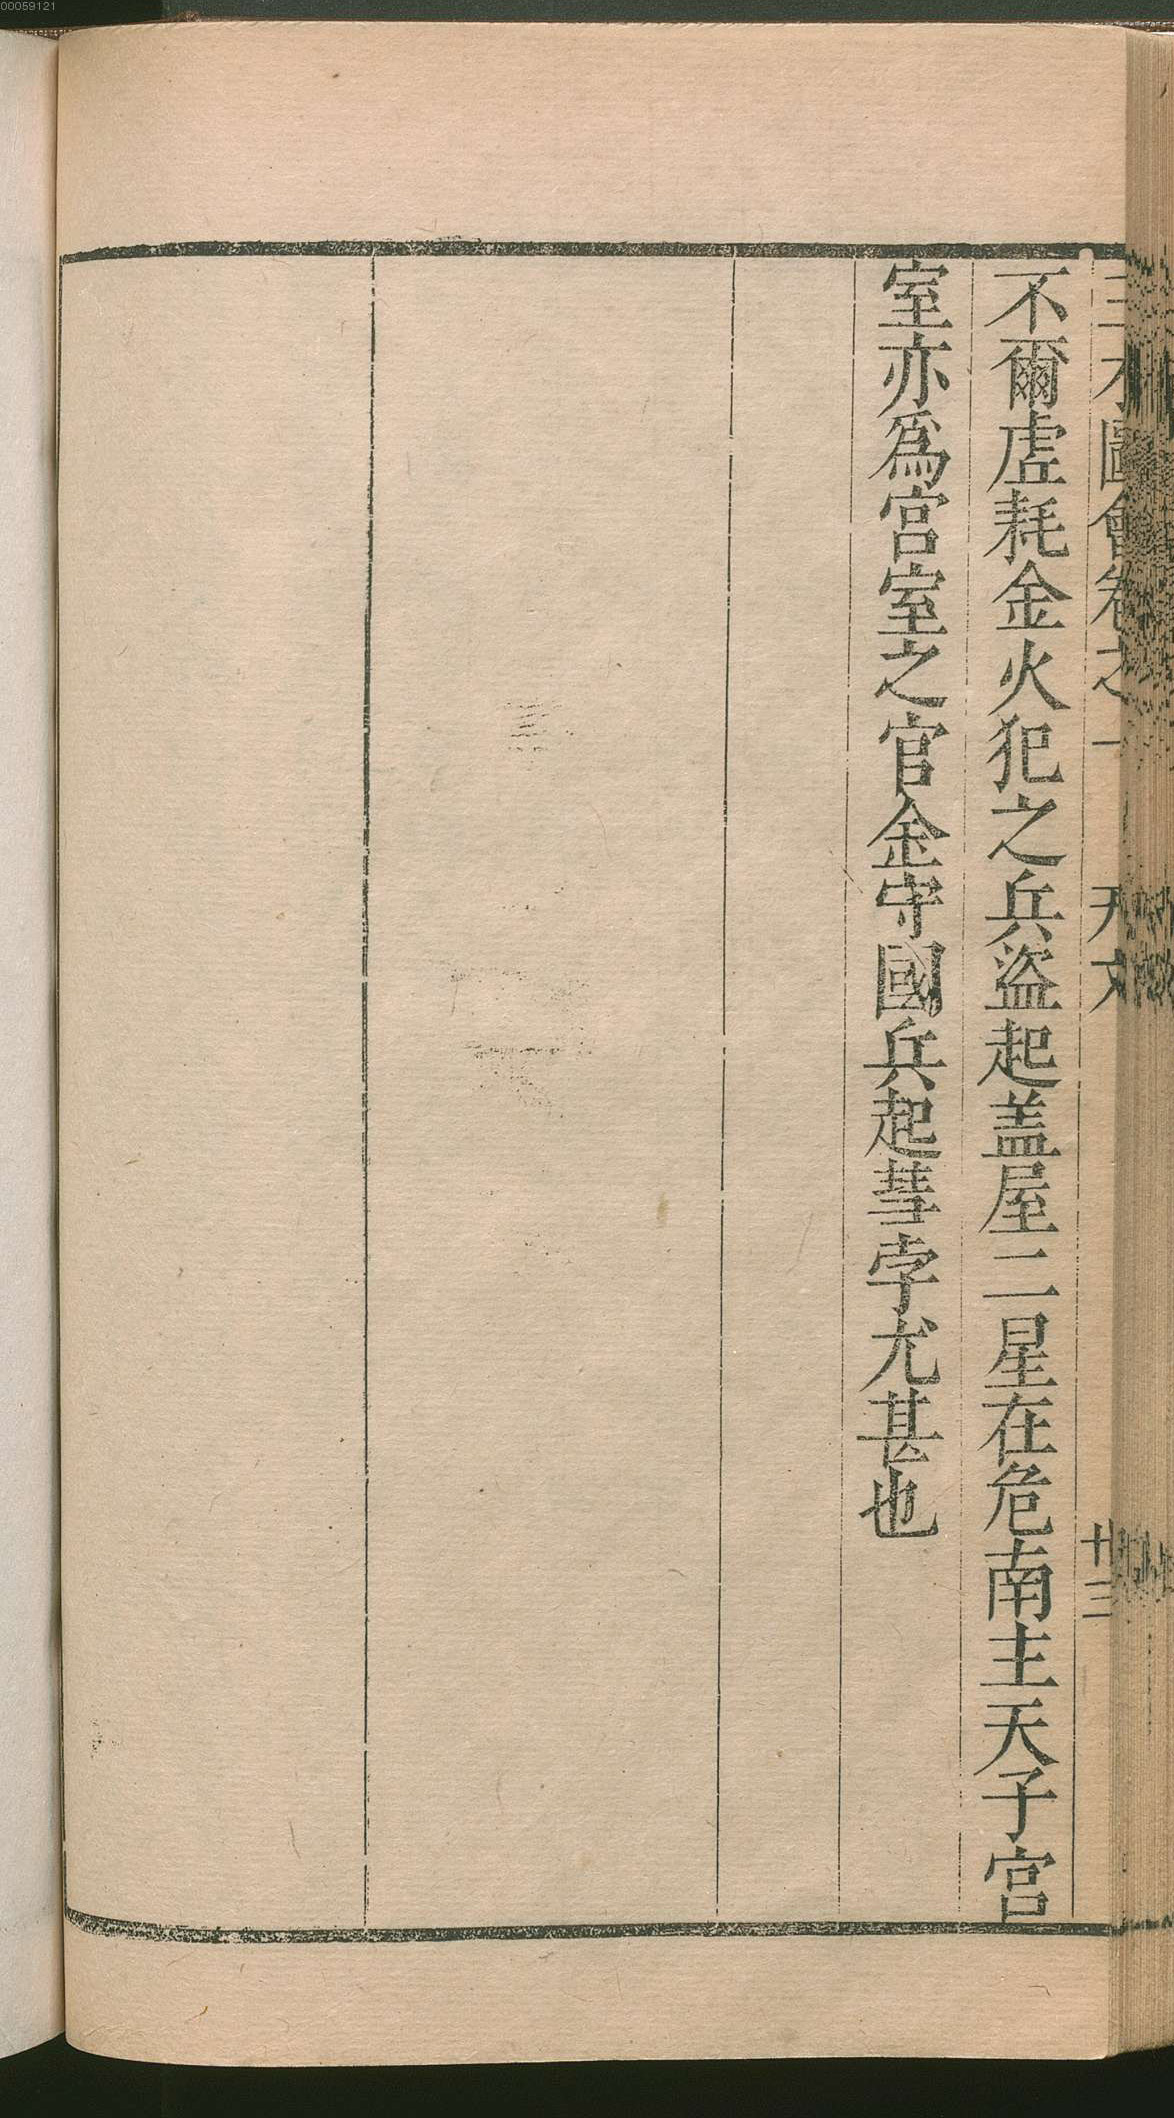 00059121
三才圖會卷之一 天文 卄三
不爾虛耗金火犯之兵盜起盖屋二星在危南主天子宮
室亦爲宮室之官金守國兵起彗孛尤甚也